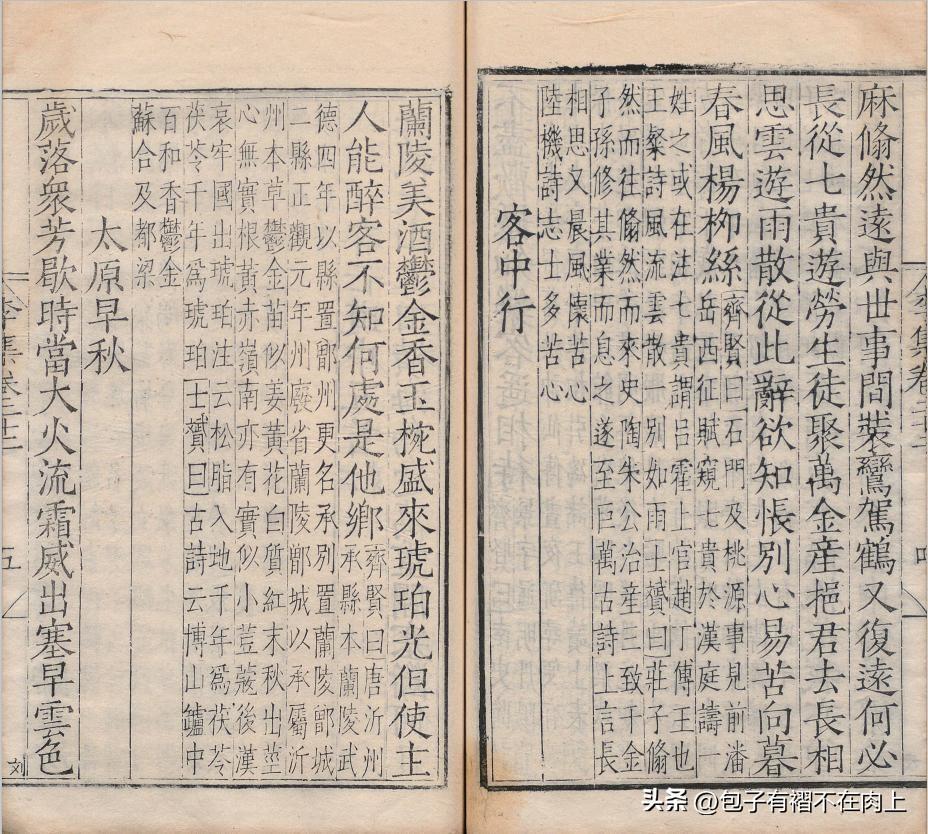 麻翛然遠與世事間裝鸞駕鶴又復遠何必
長從七貴遊勞生徒聚萬金産挹君去長相
思雲遊雨散從此辭欲知悵別心易苦向暮
春風楊栁絲
齊賢曰石門及桃源事見前潘
岳西征賦窺七貴於漢庭譸一
姓之或在注七貴謂吕霍上官趙丁傅王也
王粲詩風流雲散一別如雨士贇曰莊子翛
然而往翛然而來史陶朱公治産三致千金
子孫修其業而息之遂至巨萬古詩上言長
相思又晨風懷苦心
陸機詩志士多苦心
客中行
蘭陵美酒鬱金香玉椀盛來琥珀光但使主
人能醉客不知何處是他鄉
齊賢曰唐沂州
承縣本蘭陵武
德四年以縣置鄫州更名承别置蘭陵鄫城
二縣正觀元年州廢省蘭陵鄫城以承屬沂
州本草鬱金苗似姜黃花白質紅末秋出莖
心無實根黃赤嶺南亦有實似小荳蔲後漢
哀牢國出琥珀注云松脂入地千年爲茯苓
茯苓千年爲琥珀士贇曰古詩云博山鑪中
百和香鬱金
蘇合及都梁
太原早秋
歲落衆芳歇時當大火流霜威出塞早雲色
刘
五
头条 @包子有褶不在肉上